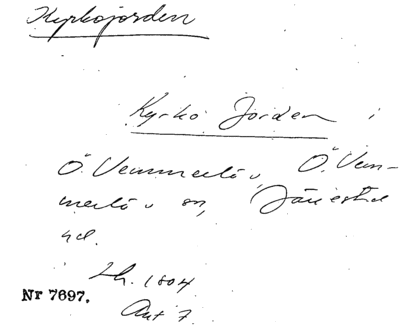 Kyrkojorden
Kyrko Jorden i
Ö. Vemmerlöv, Ö. Vem-
merlövs sn, Järrestad
hd.
Lh. 1804
Nr 7697.
Akt 7